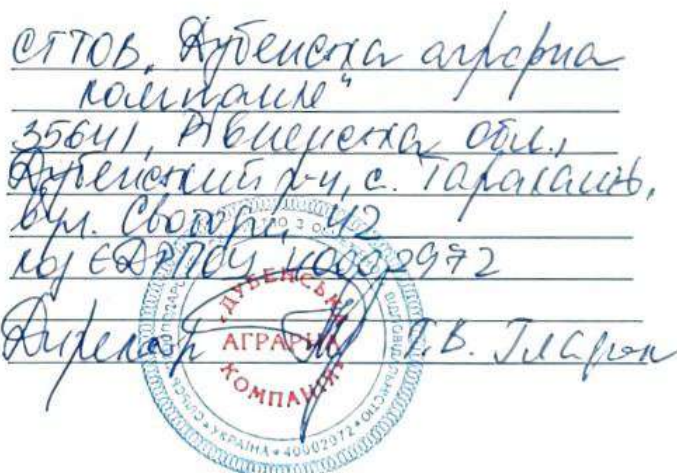 СТТОВ „Дубенська аграрна
компанія“
35641, Рівненська обл.,
Дубенський р-н, с. Тараканів,
вул. 42
код ЄДРПОУ 40002972
Директор Т.В.
«ДУБЕНСЬКА
АГРАРНА
КОМПАНІЯ»
УКРАЇНА * 40002072 *